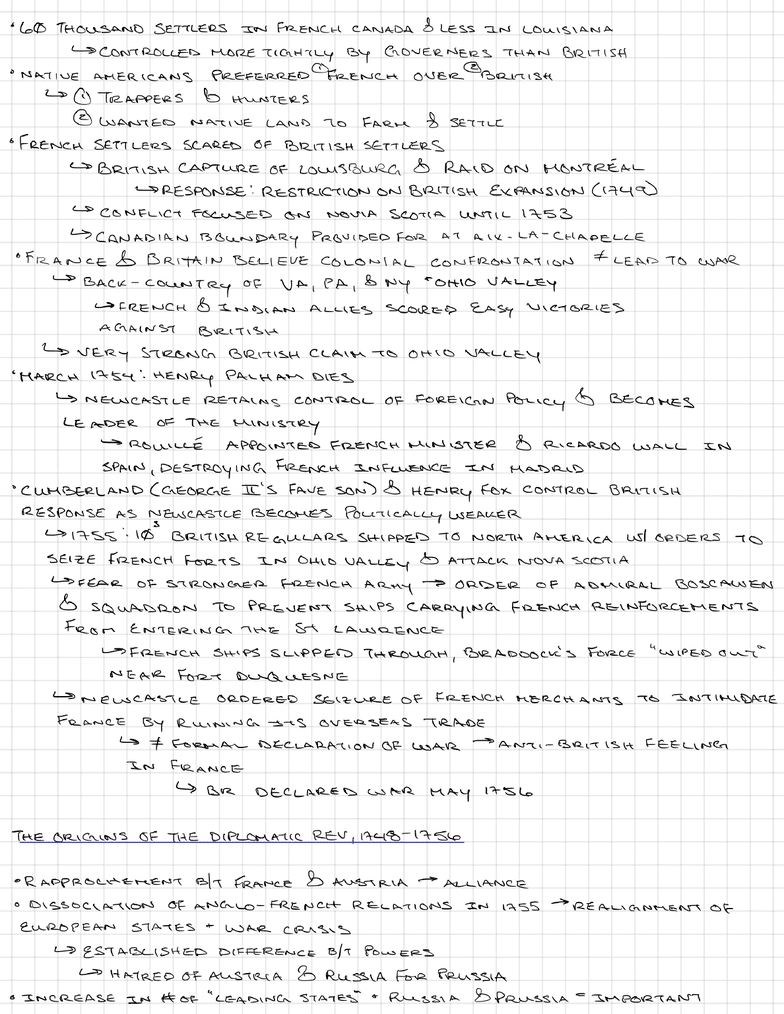 •60 THOUSAND SETTLERS IN FRENCH CANADA & LESS IN LOUISIANA
↳CONTROLLED MORE TIGHTLY BY GOVERNERS THAN BRITISH
•NATIVE AMERICANS PREFERRED ①FRENCH OVER ②BRITISH
↳ ① TRAPPERS & HUNTERS
② WANTED NATIVE LAND TO FARM & SETTLE
•FRENCH SETTLERS SCARED OF BRITISH SETTLERS
↳BRITISH CAPTURE OF LOUISBURG & RAID ON MONTRÉAL
↳RESPONSE: RESTRICTION ON BRITISH EXPANSION (1749)
↳CONFLICT FOCUSED ON NOVIA SCOTIA UNTIL 1753
↳CANADIAN BOUNDARY PROVIDED FOR AT AIX-LA-CHAPELLE
•FRANCE & BRITAIN BELIEVE COLONIAL CONFRONTATION ≠ LEAD TO WAR
↳ BACK-COUNTRY OF VA, PA, & NY = OHIO VALLEY
↳FRENCH & INDIAN ALLIES SCORED EASY VICTORIES
AGAINST BRITISH
↳ VERY STRONG BRITISH CLAIM TO OHIO VALLEY
•MARCH 1754: HENRY PALHAM DIES
↳ NEWCASTLE RETAINS CONTROL OF FOREIGN POLICY & BECOMES
LEADER OF THE MINISTRY
↳ ROUILLÉ APPOINTED FRENCH MINISTER & RICARDO WALL IN
SPAIN, DESTROYING FRENCH INFLUENCE IN MADRID
•CUMBERLAND (GEORGE II'S FAVE SON) & HENRY FOX CONTROL BRITISH
RESPONSE AS NEWCASTLE BECOMES POLITICALLY WEAKER
↳1755: 10³ BRITISH REGULARS SHIPPED TO NORTH AMERICA W/ ORDERS TO
SEIZE FRENCH FORTS IN OHIO VALLEY & ATTACK NOVA SCOTIA
↳FEAR OF STRONGER FRENCH ARMY → ORDER OF ADMIRAL BOSCAWEN
& SQUADRON TO PREVENT SHIPS CARRYING FRENCH REINFORCEMENTS
FROM ENTERING THE ST LAWRENCE
↳FRENCH SHIPS SLIPPED THROUGH, BRADDOCK'S FORCE "WIPED OUT"
NEAR FORT DUQUESNE
↳NEWCASTLE ORDERED SEIZURE OF FRENCH MERCHANTS TO INTIMIDATE
FRANCE BY RUINING ITS OVERSEAS TRADE
↳ ≠ FORMAL DECLARATION OF WAR → ANTI-BRITISH FEELING
IN FRANCE
↳ BR DECLARED WAR MAY 1756
THE ORIGINS OF THE DIPLOMATIC REV, 1748-1756
•RAPPROCHEMENT B/T FRANCE & AUSTRIA → ALLIANCE
• DISSOCIATION OF ANGLO-FRENCH RELATIONS IN 1755 → REALIGNMENT OF
EUROPEAN STATES + WAR CRISIS
↳ ESTABLISHED DIFFERENCE B/T POWERS
↳ HATRED OF AUSTRIA & RUSSIA FOR PRUSSIA
• INCREASE IN # OF "LEADING STATES" • RUSSIA & PRUSSIA = IMPORTANT